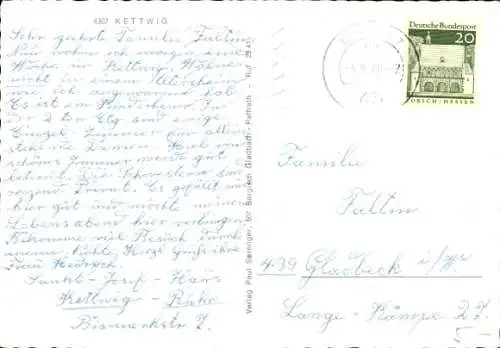 4307 KETTWIG
Sehr geehrte Familie Faltin
Nun wohne ich einige
Woche in Kettwig. Wohne
nicht in einem Altersheim
wie ich angenommen hab.
Es ist ein Kinderheim. In
der 2ten Etg sind einige
Einzel-Zimmer für allein
stehende Damen. Hab ein
schönes Zimmer werde gut
betreut. Die Schwestern sind
Es gefällt mir
hier gut und möchte meinen
Lebensabend hier verbringen
Bekomme viel Besuch durch
meine Herzl. Grüße Ihre
Frau
Sankt-Josef-Haus
Kettwig-Ruhr
Bismarckstr 7.
Verlag Paul Severiger, 507 Bergisch Gladbach - Paffrath - Ruf 2941
Deutsche Bundespost
20
LORSCH/HESSEN
Familie
Faltin
439 Gladbeck i/W.
Lange-Kämpe 27.
5-